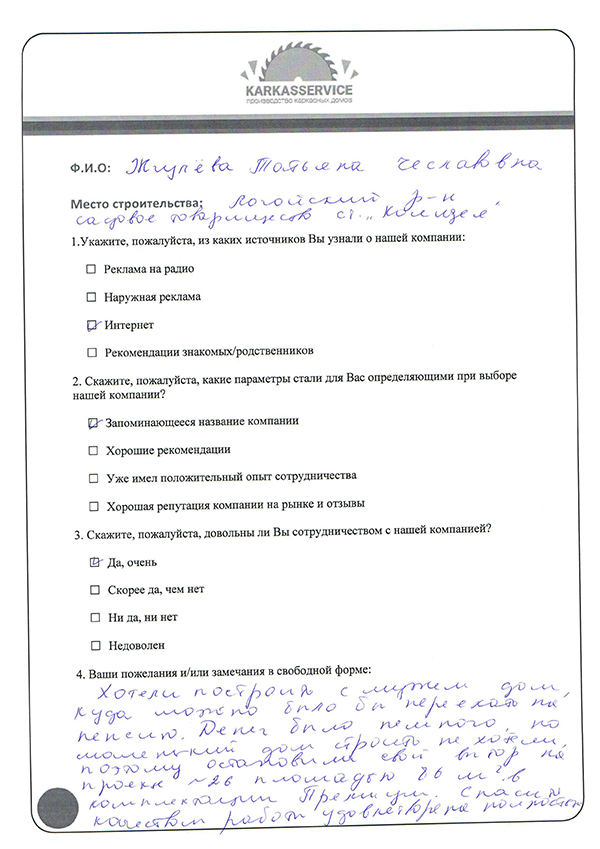 KARKASSERVICE
производство каркасных домов
Ф.И.О: Жгулёва Татьяна Чеславовна
Место строительства: Логойский р-н
садовое товарищество ст. „Колизей"
1.Укажите, пожалуйста, из каких источников Вы узнали о нашей компании:
Реклама на радио
Наружная реклама
Интернет
Рекомендации знакомых/родственников
2. Скажите, пожалуйста, какие параметры стали для Вас определяющими при выборе
нашей компании?
Запоминающееся название компании
Хорошие рекомендации
Уже имел положительный опыт сотрудничества
Хорошая репутация компании на рынке и отзывы
3. Скажите, пожалуйста, довольны ли Вы сотрудничеством с нашей компанией?
Да, очень
Скорее да, чем нет
Ни да, ни нет
Недоволен
4. Ваши пожелания и/или замечания в свободной форме:
Хотели построить с мужем дом,
куда можно было бы переехать на
пенсию. Денег было немного, но
маленький дом строить не хотели,
поэтому остановили свой выбор на
проекте №26 площадью м². в
комплектации Премиум. Спасибо
качеством работ удовлетворена полностью